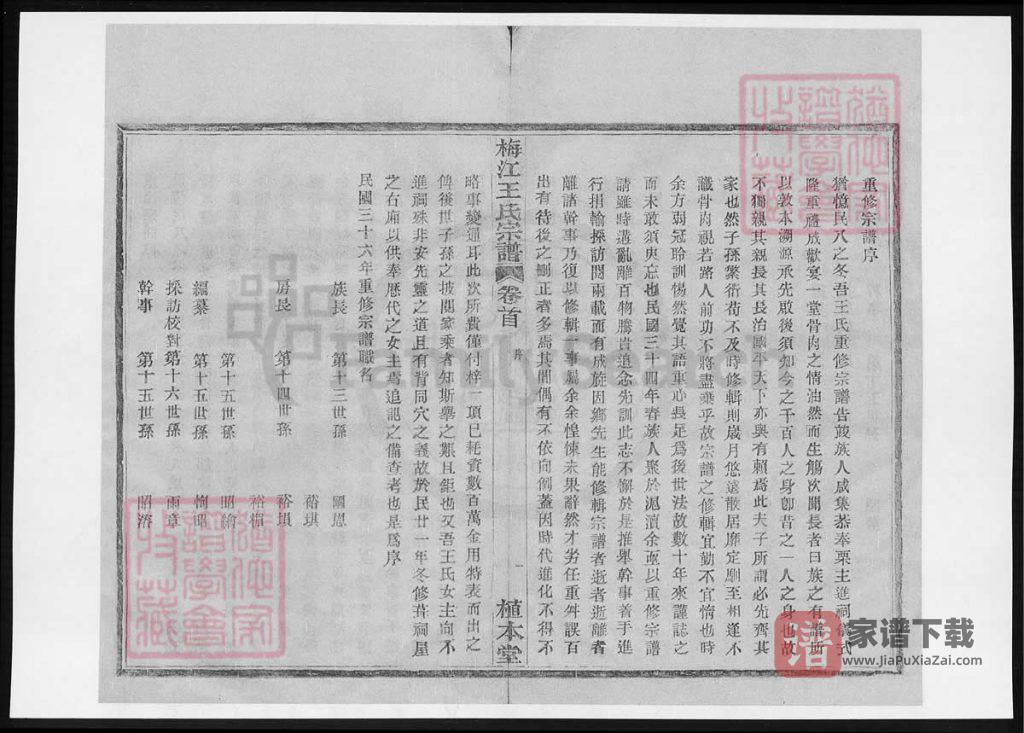 重修宗譜序
猶憶民八之冬吾王氏重修宗譜告竣族人咸集恭奉栗主進祠儀式
隆重禮成歡宴一堂骨肉之情油然而生觴次聞長者曰族之有譜所
以敦本溯源承先啟後須知今之千百人之身卽昔之一人之身也故
不獨親其親長其長治國平天下亦與有賴焉此夫子所謂必先齊其
家也然子孫繁衍苟不及時修輯則歲月悠遠散居靡定馴至相逢不
識骨肉視若路人前功不將盡棄乎故宗譜之修輯宜勤不宜惰也時
余方弱冠聆訓惕然覺其語重心長足爲後世法故數十年來謹誌之
而未敢須臾忘也民國三十四年春族人聚於滬瀆余亟以重修宗譜
請雖時遘亂離百物騰貴追念先訓此志不懈於是推舉幹事着手進
行捐輸採訪閱兩載而有成旋因鄉先生能修輯宗譜者逝者逝離者
離諸幹事乃復以修輯一事屬余余惶悚未果辭然才劣任重舛誤百
出有待後之刪正者多焉其間偶有不依向例蓋因時代進化不得不
梅江王氏宗譜
卷首
序
一
植本堂
略事變通耳此次所費僅付梓一項已耗資數百萬金用特表而出之
俾後世子孫之披閱家乘者知斯舉之艱且鉅也又吾王氏女主向不
進祠殊非安先靈之道且有背同穴之義故於民廿一年冬修葺祠屋
之右廂以供奉歷代之女主焉追記之備查考也是爲序
民國三十六年重修宗譜職名
族長 第十三世孫 國恩
裕琪
房長 第十四世孫 裕塤
裕楣
第十五世孫 昭繪
編纂 第十五世孫 恂昭
採訪校對 第十六世孫 雨章
幹事 第十五世孫 昭濟
譜
家谱下载
www.JiaPuXiaZai.com